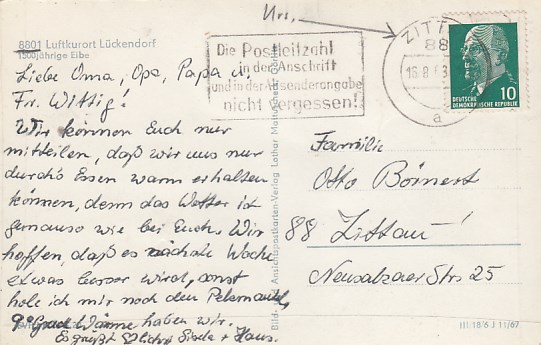 8801 Luftkurort Lückendorf
1500jährige Eibe
Liebe Oma, Opa, Papa u.
Fr. Wittig!
Wir können Euch nur
mitteilen, daß wir uns nur
durch's Essen warm erhalten
können, denn das Wetter ist
genauso wie bei Euch. Wir
hoffen, daß es nächste Woche
etwas besser wird, sonst
hole ich mir noch den Pelzmantel,
9° Grad Wärme haben wir.
Es grüßt + Hans.
Bild- und Ansichtspostkarten-Verlag Lothar
Die Postleitzahl
in der Anschrift
und in der Absenderangabe
nicht vergessen!
ZITT
88
16.8
a
DEUTSCHE
DEMOKRATISCHE REPUBLIK
10
Familie
Otto Börnert
88 Zittau!
Neusalzaer Str 25
III/18/6 J 11/67